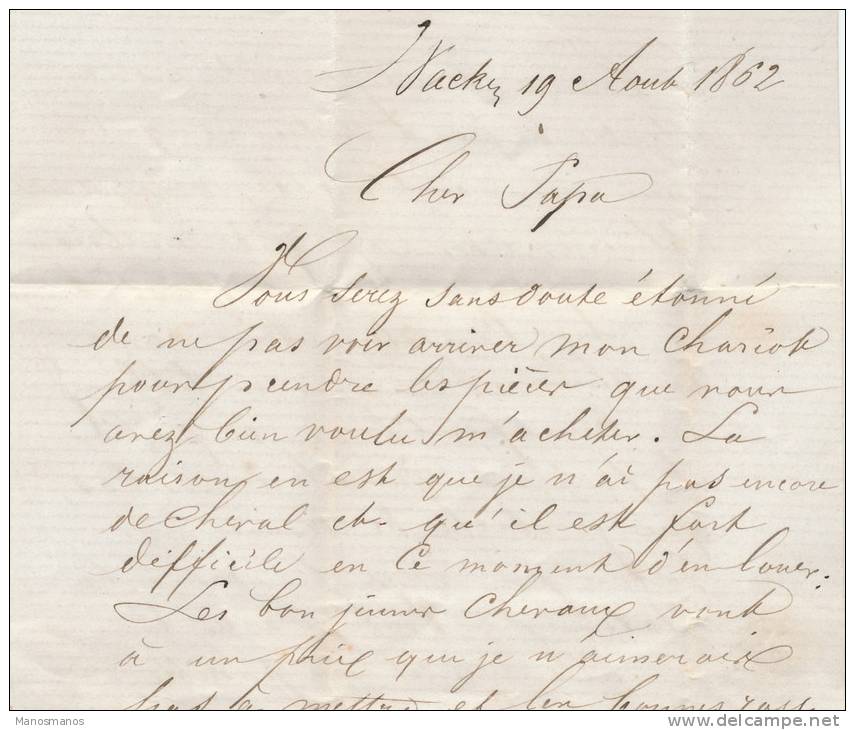 Wacken 19 Aout 1862
Cher Papa
Vous serez sans doute étonné
de ne pas voir arriver mon chariot
pour prendre les pièces que vous
avez bien voulu m'acheter. La
raison en est que je n'ai pas encore
de cheval et qu'il est fort
difficile en ce moment d'en louer.
Les bon jeunes chevaux vont
à un prix que je n'aimerais
pas à mettre et les bonnes
Manosmanos
delcampe.net